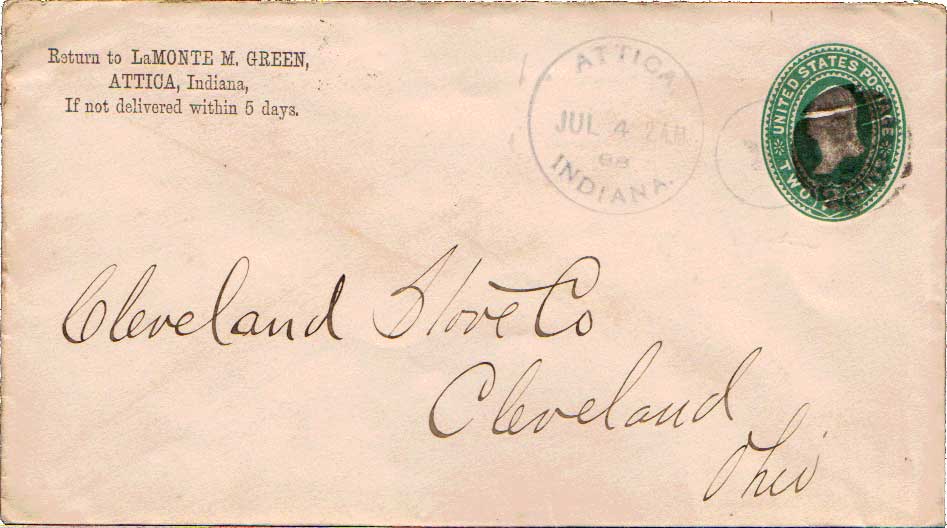 Return to LaMONTE M. GREEN,
ATTICA, Indiana,
If not delivered within 5 days.
ATTICA
JUL 4 2AM
88
INDIANA.
UNITED STATES POSTAGE
TWO
Cleveland Stove Co
Cleveland
Ohio